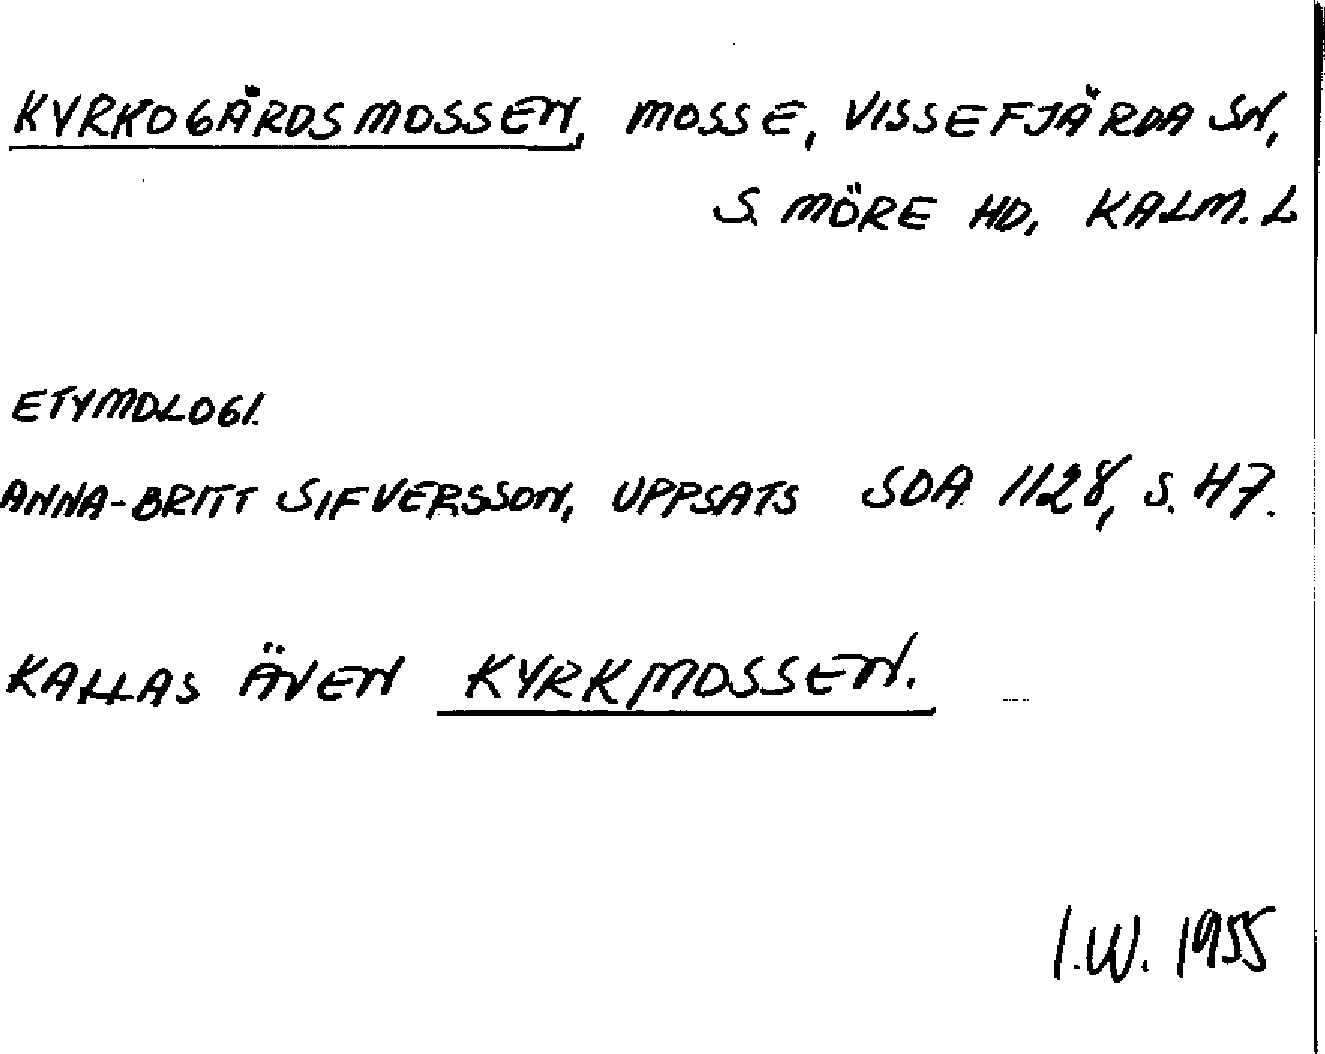 KYRKOGÅRDSMOSSEN, MOSSE, VISSEFJÄRDA SN,
S. MÖRE HD, KALM. L
ETYMOLOGI.
ANNA-BRITT SIFVERSSON, UPPSATS SOA 1128, S. 47.
KALLAS ÄVEN KYRKMOSSEN.
I.W. 1955